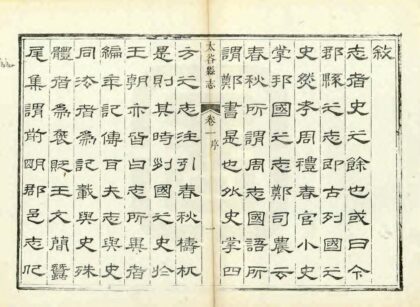 敘
志者史之餘也或曰今
郡縣之志即古列國之
史矣考周禮春官小史
掌邦國之志鄭司農云
春秋所謂周志國語所
謂鄭書是也外史掌四
太谷縣志
卷一
序
一
方之志注引春秋檮杌
是則其時列國之史於
王朝亦皆曰志所異者
編年記傳耳夫志與史
同流者為記載與史殊
體者為褒貶王文簡蠶
尾集謂前明郡邑志